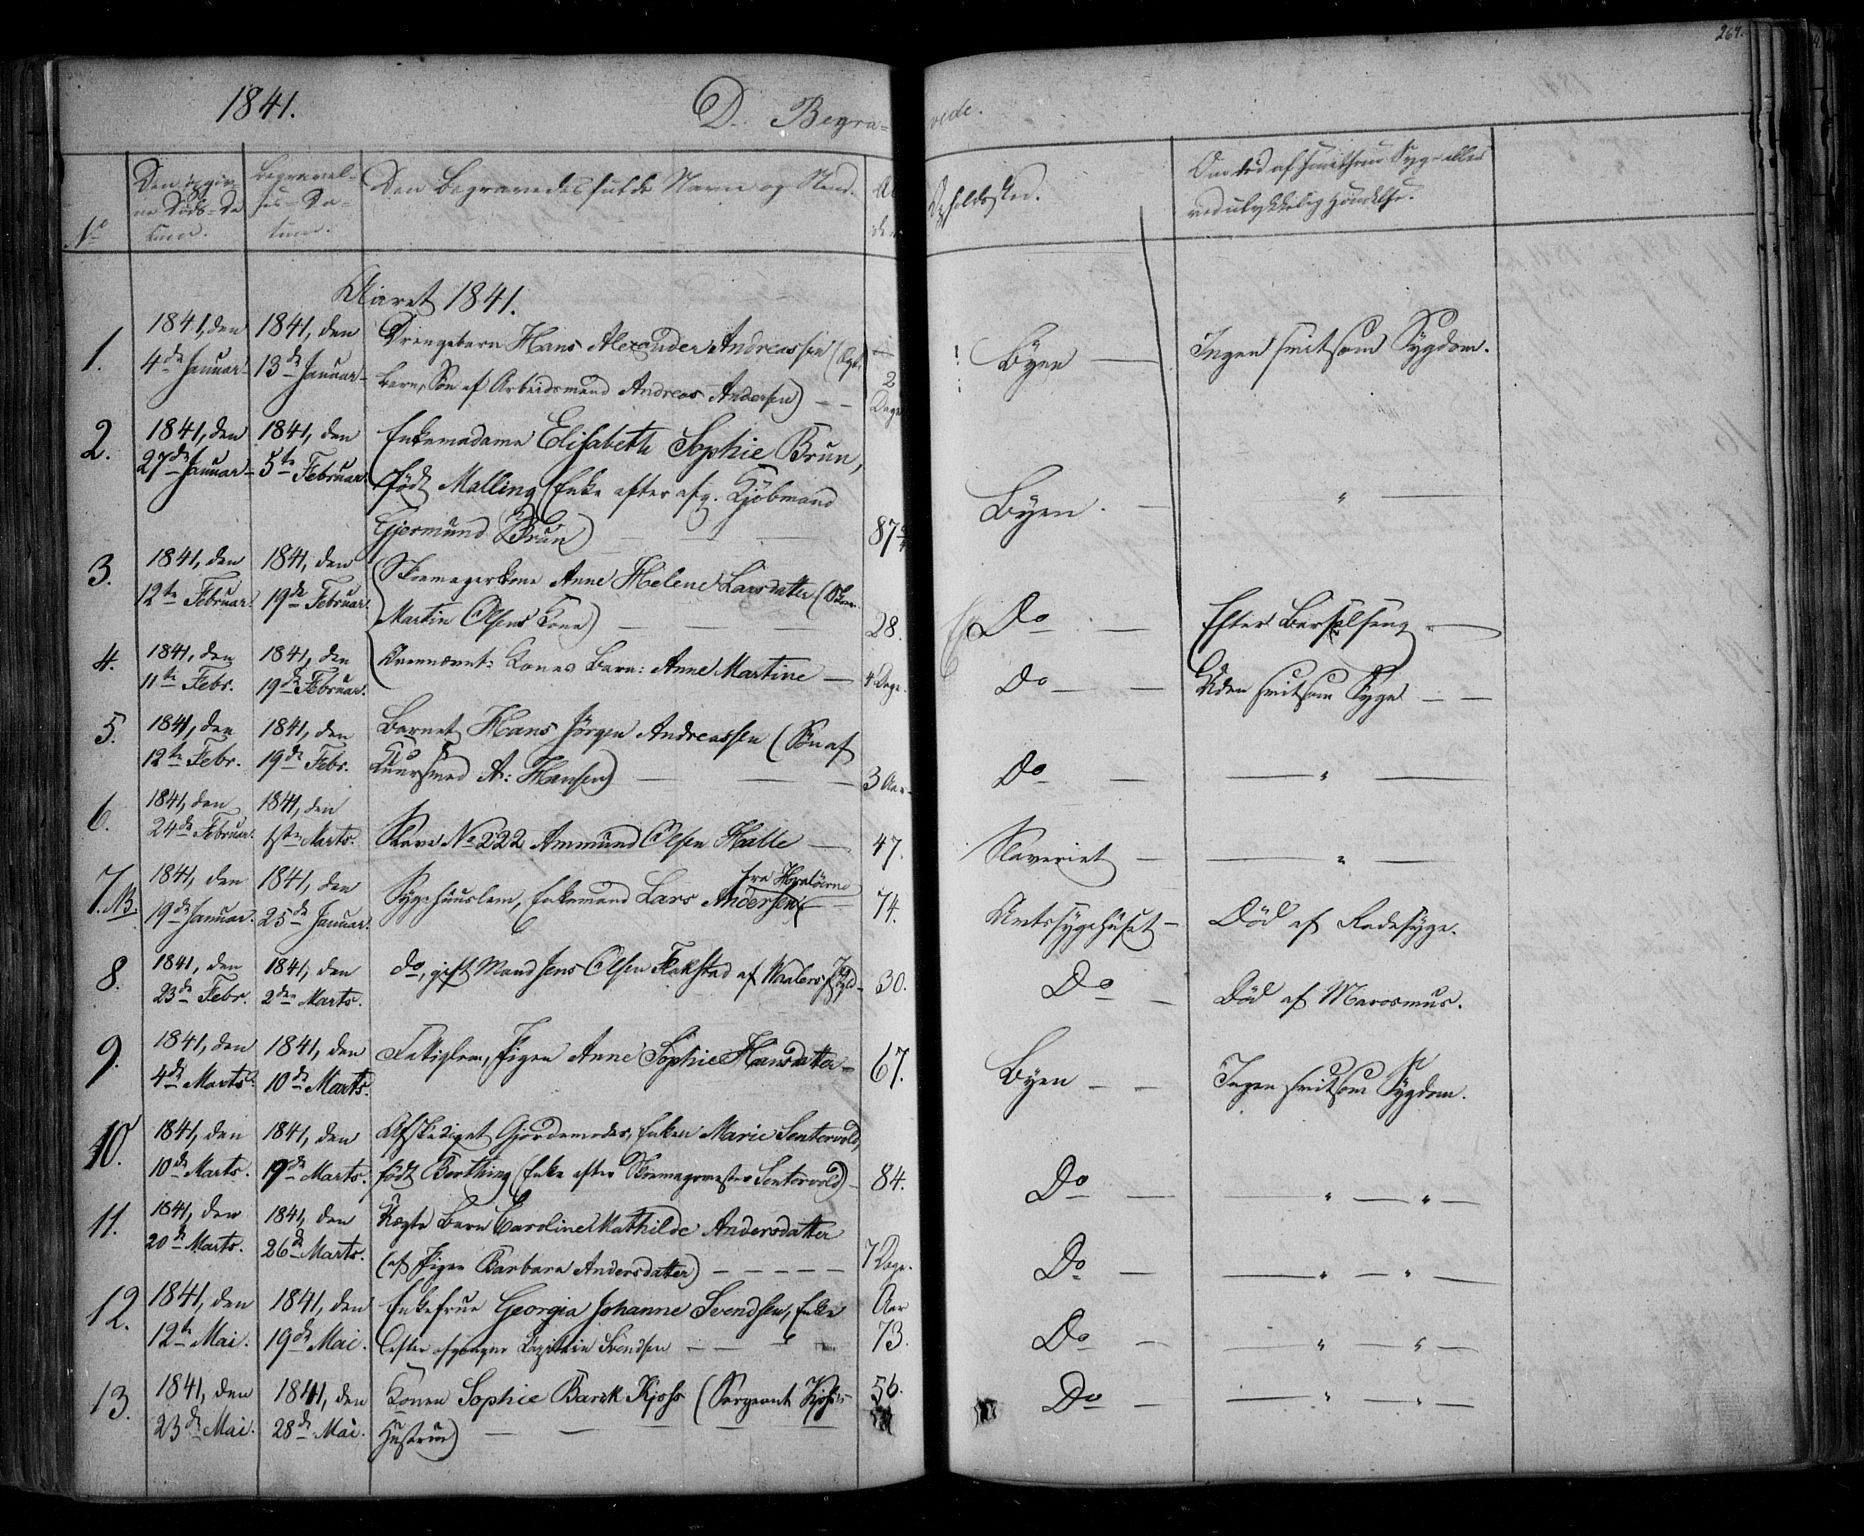 264.
1841.
D. Begra-
vede.
No
Den
ne Døds-Da
tum.
Begravel-
ses-Da-
tum.
Den Begravedes fulde Navn og Stand.
Opholdssted.
Om død af smitsom Syge eller
ved ulykkelig Hændelse.
Aaret 1841.
1.
1841, den
4de Januar.
1841, den
13de Januar
Drengebarn Hans Alexander Andreassen (Ægte
barn, Søn af Arbeidsmand Andreas Andersen)
2
Dage
Byen
Ingen smitsom Sygdom.
2.
1841, den
27de Januar
1841, den
5te Februar
Enkemadame Elisabeth Sophie Brun,
født Malling (Enke efter afg. Kjøbmand
Gjermund Brun)
87
Byen.
"
3.
1841, den
12te Februar.
1841, den
19de Februar.
Skomagerkone Anne Helene Larsdatter (Skom.
Martin Olsens Kone)
28.
Do
Efter Barselseng
4.
1841, den
11te Febr.
1841, den
19de Februar.
Ovennævnt: Kones Barn: Anne Martine
4 Dage.
Do
Uden smitsom Syge
5.
1841, den
12te Febr.
1841, den
19de Febr.
Barnet Hans Jørgen Andreassen (Søn af
A: Hansen)
3 Aar
Do
"
6.
1841, den
24de Februar.
1841, den
1ste Marts.
Slave No 222 Ammund Olsen Halle
47.
Slaveriet
"
7. NB.
1841, den
19de Januar.
1841, den
25de Januar.
Sygehuuslem, Enkemand Lars Andersen
fra Hvaløerne
74.
Amtssygehuset
Død af Radesyge.
8.
1841, den
23de Febr.
1841, den
2den Marts.
do, gift Mand Jens Olsen Flakstad af Waalers Pgld
30.
Do
Død af Marasmus.
9.
1841, den
4de Marts.
1841, den
10de Marts.
Fattiglem, Pigen Anne Sophie Hansdatter
67.
Byen
Ingen smitsom Sygdom.
10.
1841, den
10de Marts.
1841, den
19de Marts.
Afskediget Gjordemoder, Enken Marie Sentervold,
født Berthing (Enke efter Skomagermester Sentervold)
84.
Do
" "
11.
1841, den
20de Marts.
1841, den
26de Marts.
Uægte Barn Caroline Mathilde Andersdatter
(af Pigen Barbara Andersdatter)
7 Dage.
Do
" "
12.
1841, den
12te Mai.
1841, den
19de Mai.
Enkefrue Georgia Johanne Svendsen, Enke
efter afgangne Capitain Svendsen
Aar
73.
Do
" "
13.
1841, den
23de Mai.
1841, den
28de Mai.
Konen Sophie Barck Kjøss (Sergeant Kjøss
Hustrue)
56.
Do
" "